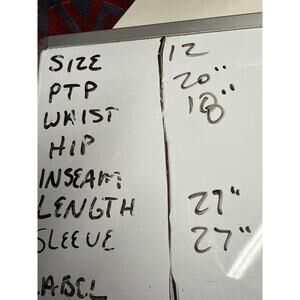 SIZE 12
PTP 20"
WAIST 18"
HIP
INSEAM
LENGTH 27"
SLEEVE 27"
LABEL